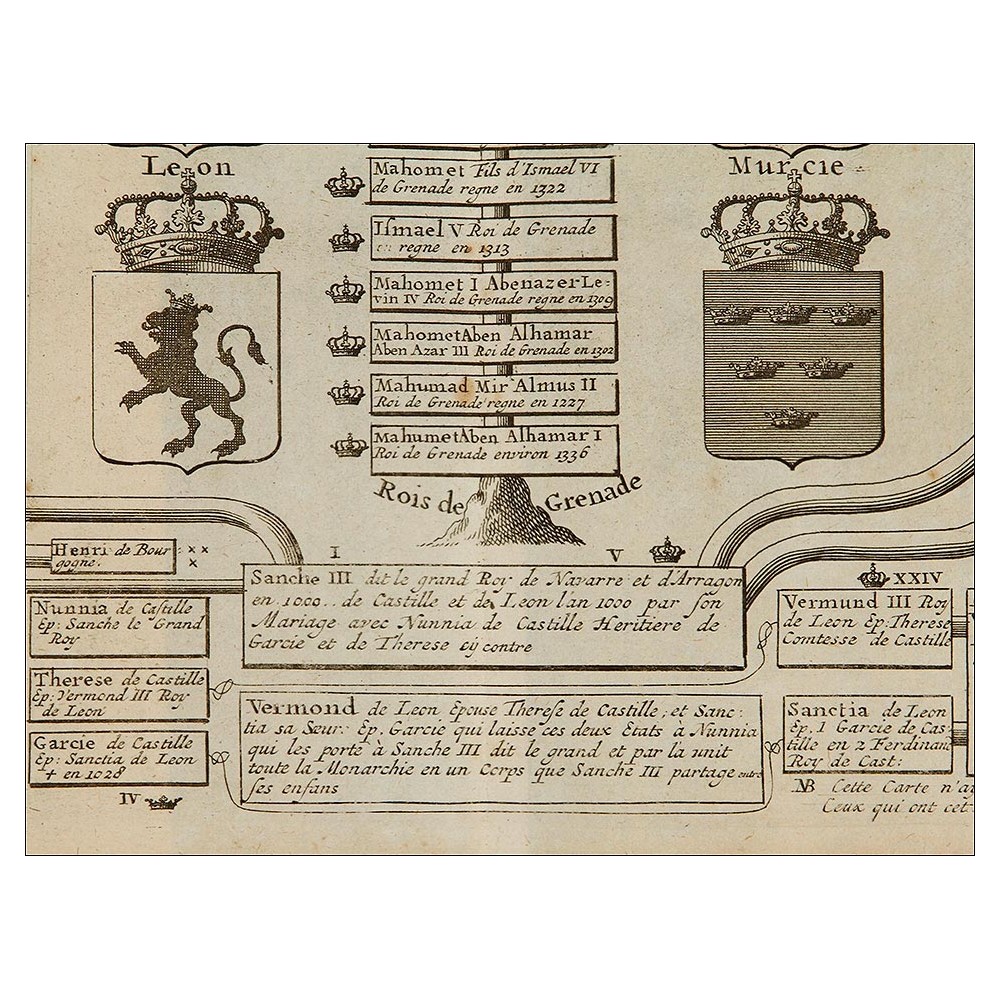 Leon
Murcie
Mahomet Fils d'Ismael VI
de Grenade regne en 1322
Ismael V Roi de Grenade
en regne en 1313
Mahomet I Abenazer Le=
vin IV Roi de Grenade regne en 1309
Mahomet Aben Alhamar
Aben Azar III Roi de Grenade en 1302
Mahumad Mir Almus II
Roi de Grenade regne en 1227
Mahumet Aben Alhamar I
Roi de Grenade environ 1336
Rois de Grenade
I
V
Henri de Bour
gogne.
Sanche III dit le grand Roy de Navarre et d'Arragon
en 1000.. de Castille et de Leon l'an 1000 par son
Mariage avec Nunnia de Castille Heritiere de
Garcie et de Therese cy contre
XXIV
Nunnia de Castille
Ep: Sanche le Grand
Roy
Vermund III Roy
de Leon Ep: Therese
Comtesse de Castille
Therese de Castille
Ep: Vermond III Roy
de Leon
Vermond de Leon Epouse Therese de Castille, et Sanc:
tia sa Sœur: Ep. Garcie qui laisse ces deux Etats à Nunnia
qui les porte à Sanche III dit le grand et par la unit
toute la Monarchie en un Corps que Sanche III partage entre
ses enfans
Sanctia de Leon
Ep. 1 Garcie de Cas:
tille en 2 Ferdinand
Roy de Cast:
Garcie de Castille
Ep: Sanctia de Leon
+ en 1028
IV
NB Cette Carte n'ai
Ceux qui ont cet